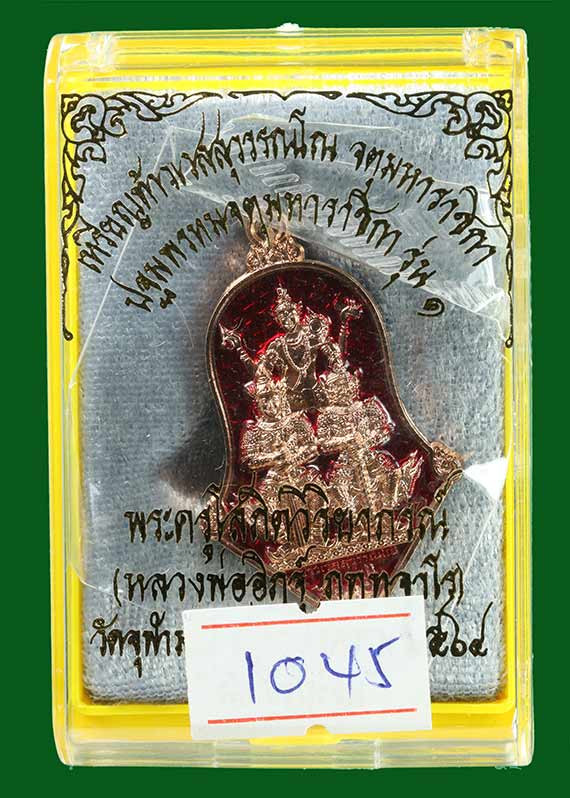 เหรียญท้าวเวสสุวรรณโณ จตุมหาราชิกา
ปฐมพรหมจตุมหาราชิกา รุ่น ๑
พระครูโสภิตวิริยาภรณ์
(หลวงพ่ออิฏฐ์ ภทฺทจาโร)
วัดจุฬาม
๕๖๔
1045